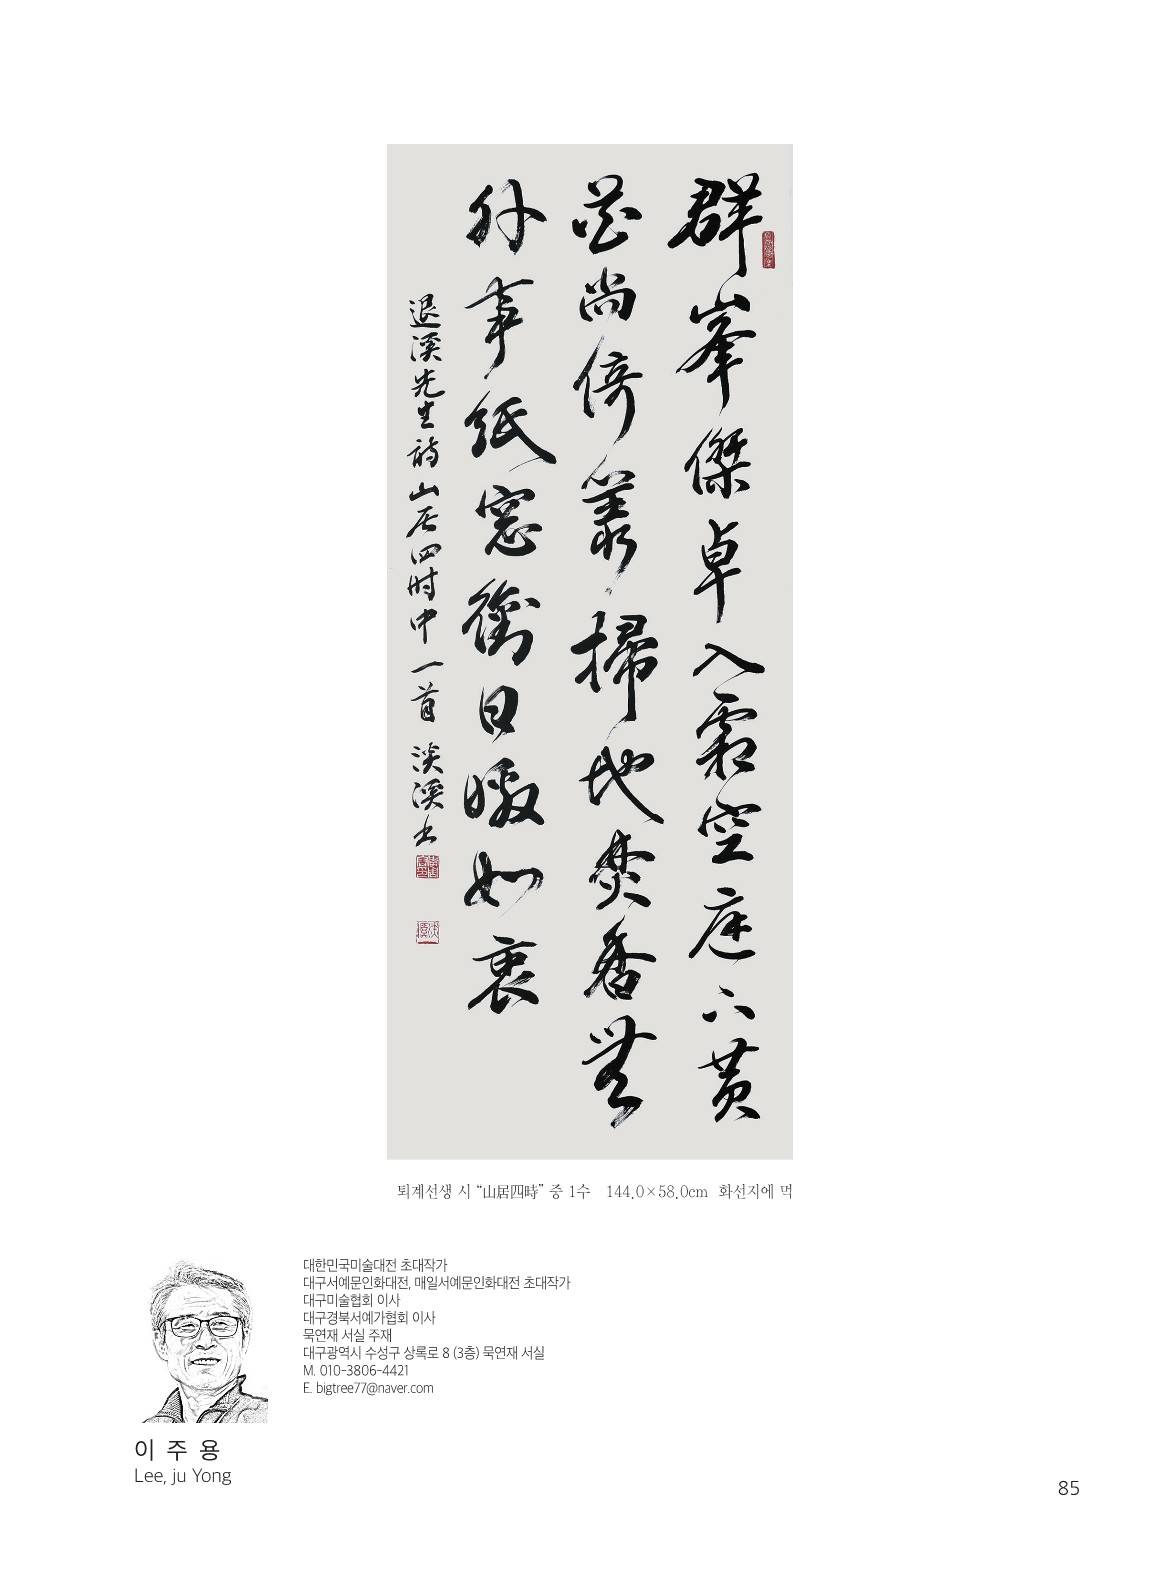 群峯傑卓入霜空庭下黃
花尚倚叢掃地焚香無
外事紙窓銜日皦如衷
退溪先生詩山居四時中一首 淡溪書
퇴계선생 시 “山居四時” 중 1수 144.0×58.0cm 화선지에 먹
대한민국미술대전 초대작가
대구서예문인화대전, 매일서예문인화대전 초대작가
대구미술협회 이사
대구경북서예가협회 이사
묵연재 서실 주재
대구광역시 수성구 상록로 8 (3층) 묵연재 서실
M. 010-3806-4421
E. bigtree77@naver.com
이 주 용
Lee, ju Yong
85